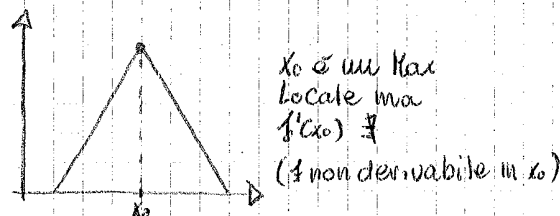 x₀ è un Max
Locale ma
f'(x₀) ∄
(f non derivabile in x₀)
x₀